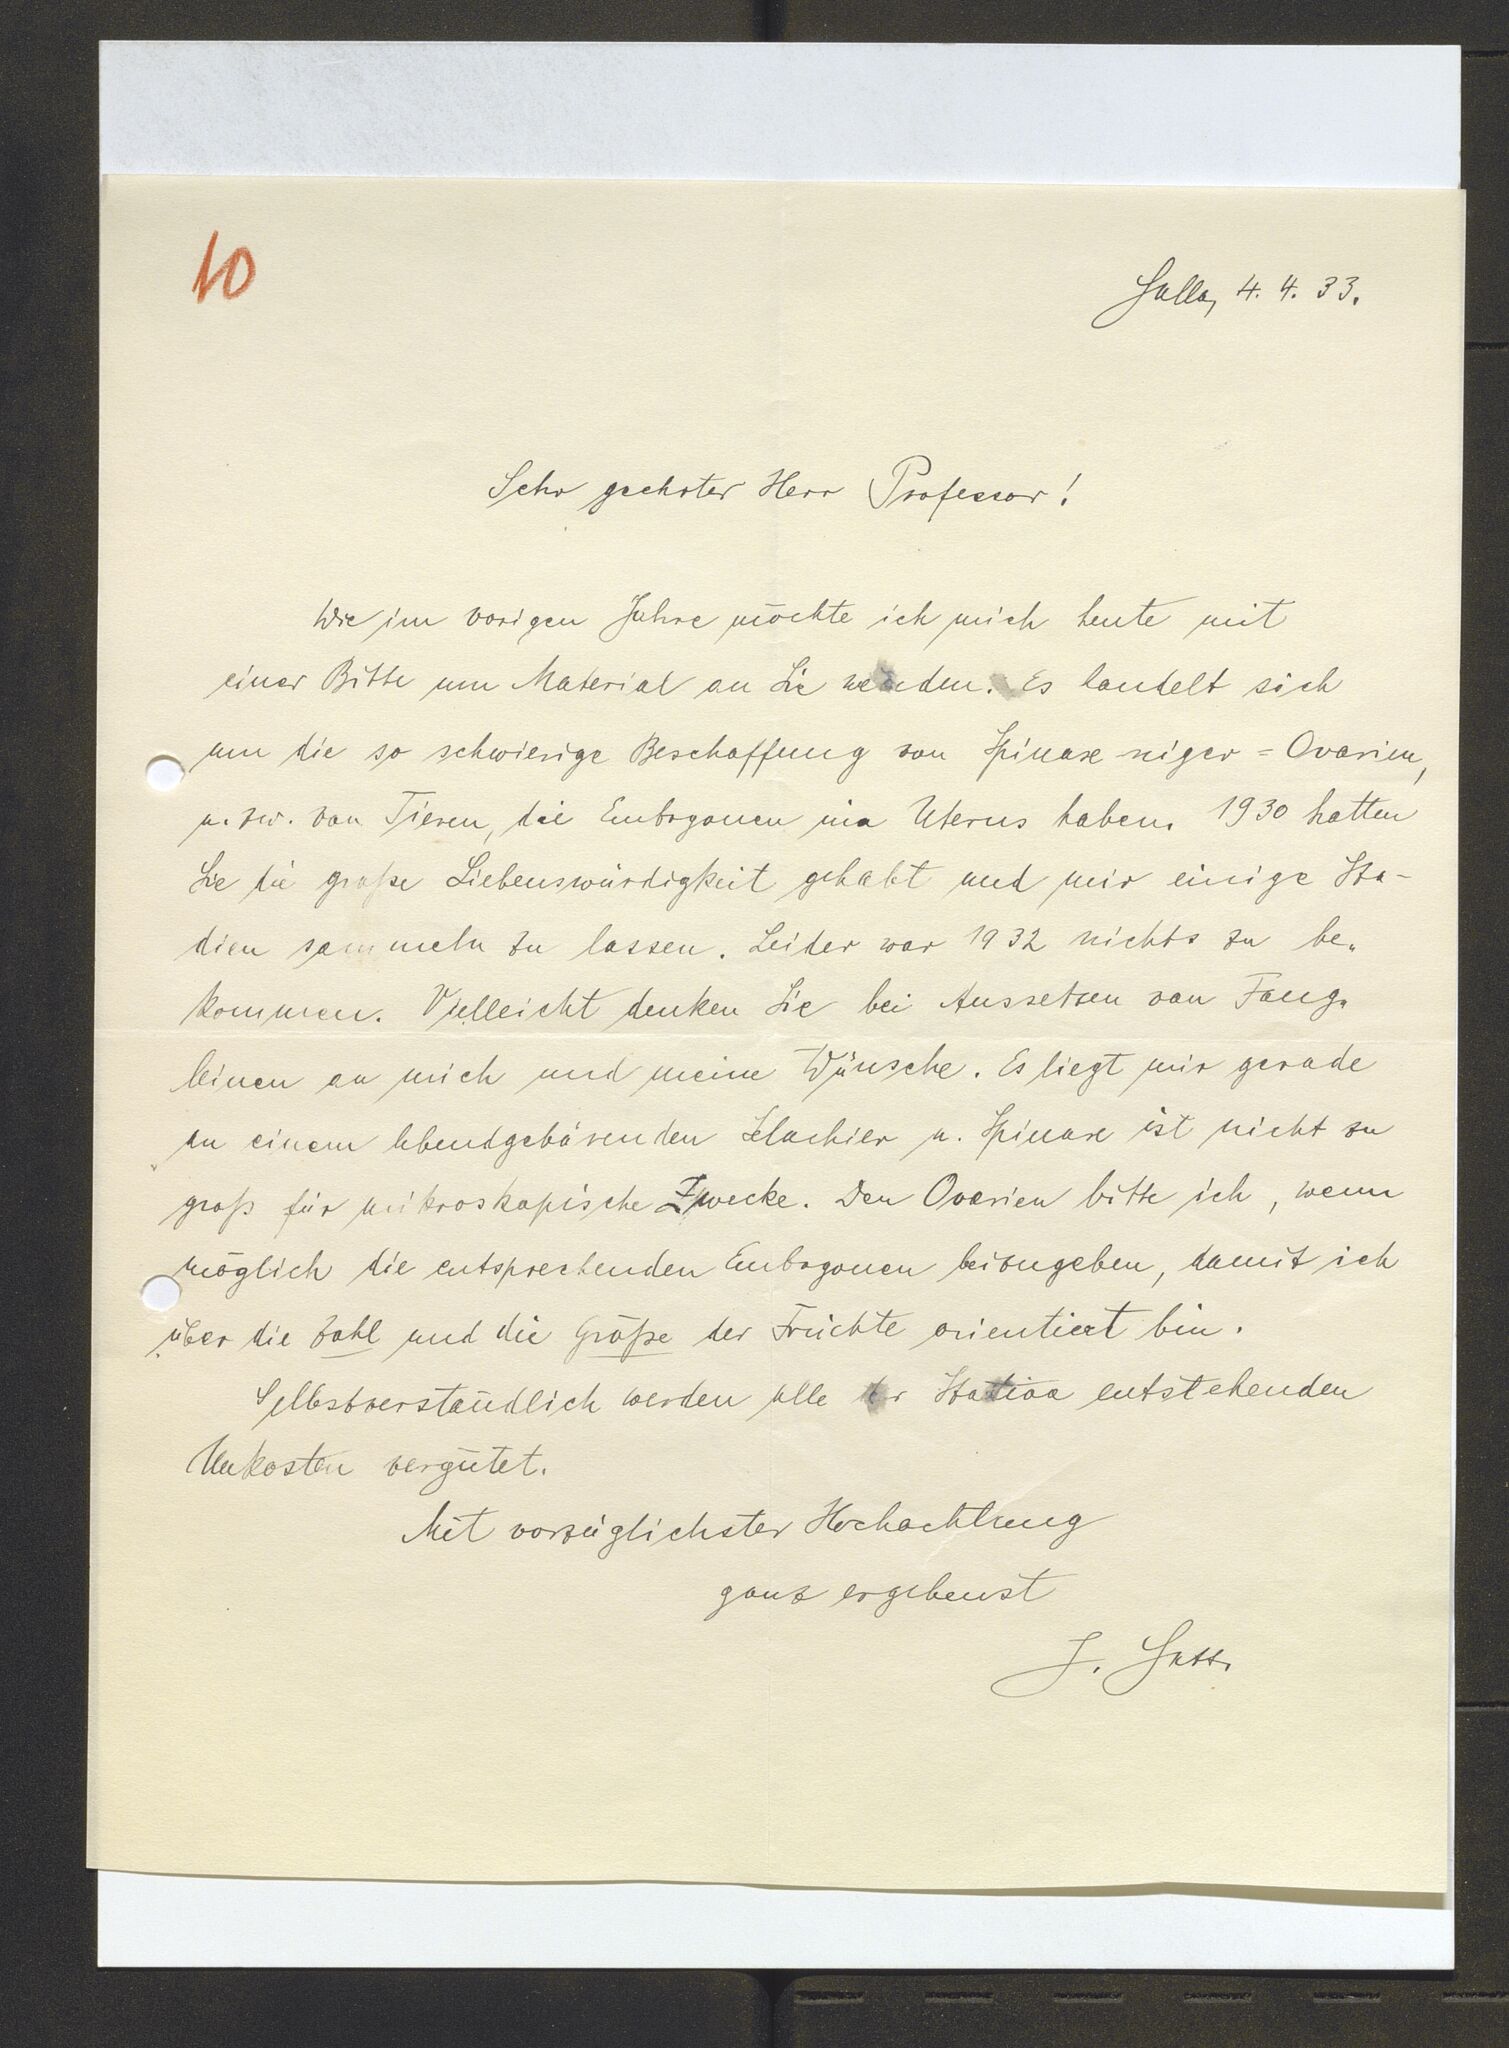 10
Halle, 4. 4. 33.
Sehr geehrter Herr Professor!
Wie im vorigen Jahre möchte ich mich heute mit
einer Bitte um Material an Sie wenden. Es handelt sich
um die so schwierige Beschaffung von Spinax niger = Ovarien,
u. zw. von Tieren, die Embryonen im Uterus haben. 1930 hatten
Sie die große Liebenswürdigkeit gehabt und mir einige Sta-
dien sammeln zu lassen. Leider war 1932 nichts zu be-
kommen. Vielleicht denken Sie bei Aussetzen von Fang-
leinen an mich und meine Wünsche. Es liegt mir gerade
an einem lebendgebärenden Selachier u. Spinax ist nicht zu
groß für mikroskopische Zwecke. Den Ovarien bitte ich, wenn
möglich die entsprechenden Embryonen beizugeben, damit ich
über die Zahl und die Größe der Früchte orientiert bin.
Selbstverständlich werden alle der Station entstehenden
Unkosten vergütet.
Mit vorzüglichster Hochachtung
ganz ergebenst